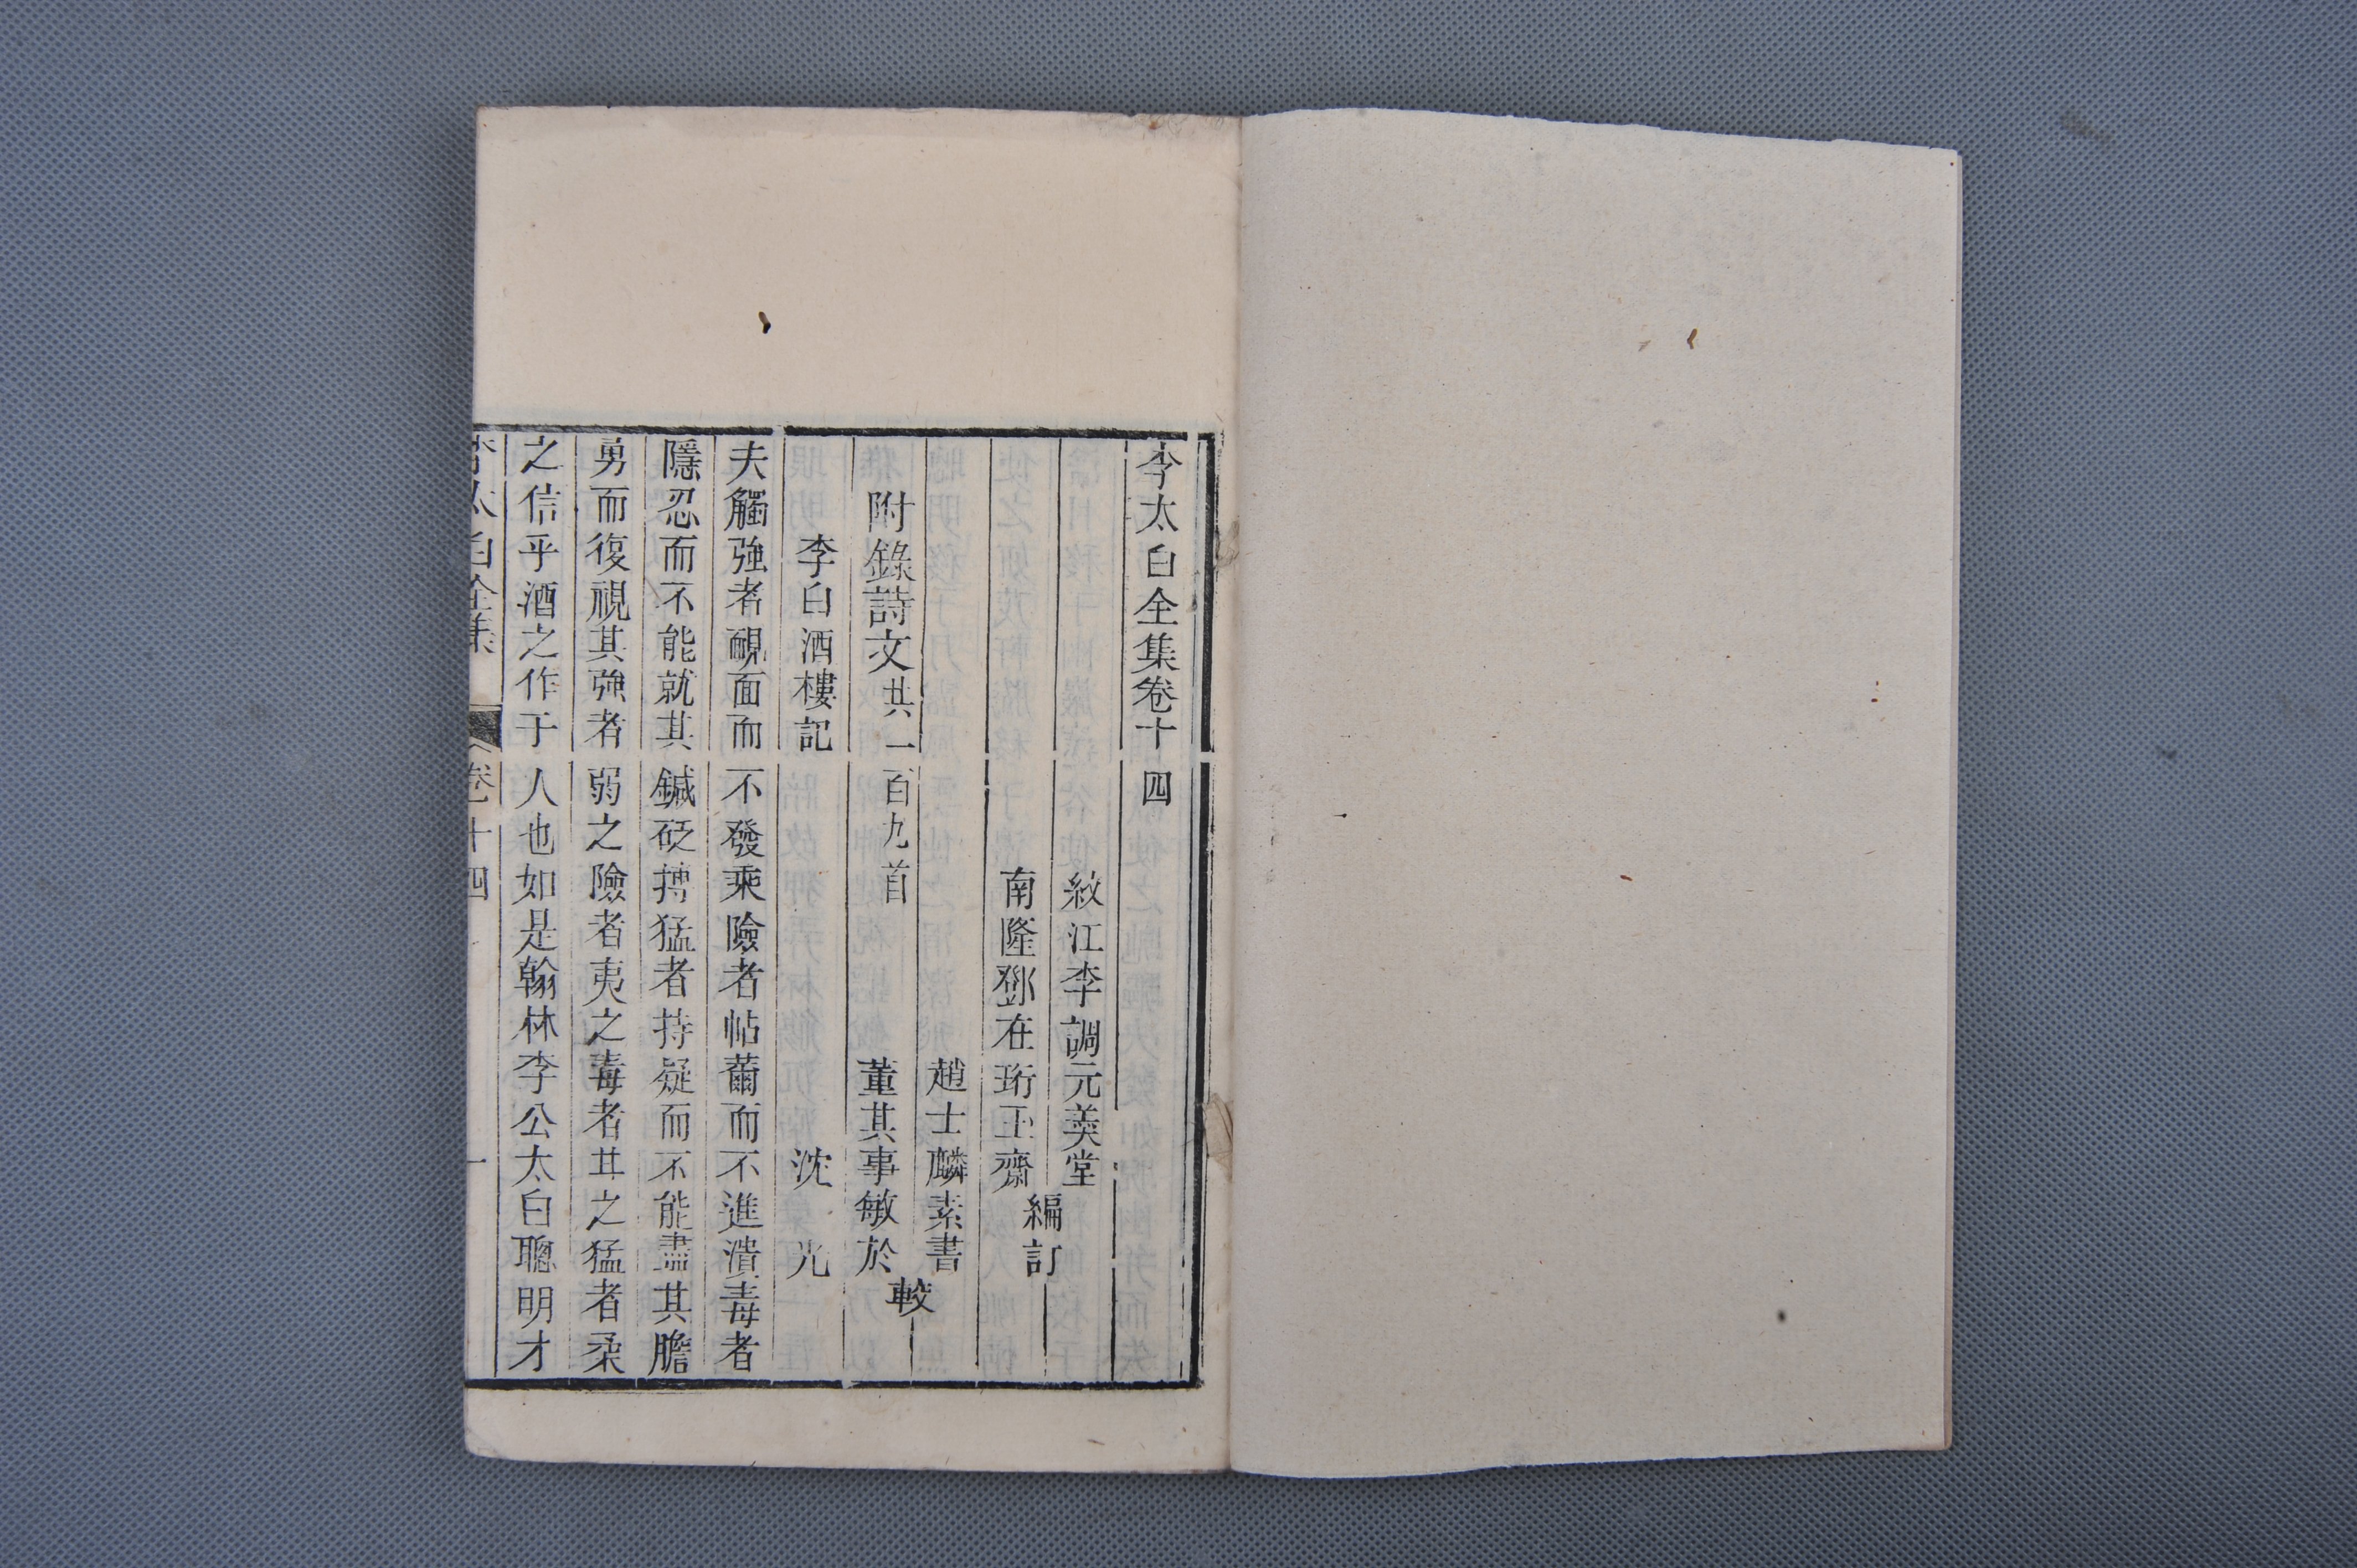 李太白全集卷十四
紋江李調元美堂
南隆鄧在珩玉齋
編訂
趙士麟素書
附錄詩文共一百九首
董其事敏於
較
李白酒樓記
沈光
夫觸強者靦面而不發乘險者帖薾而不進潰毒者
隱忍而不能就其鍼砭搏猛者持疑而不能盡其膽
勇而復視其強者弱之險者夷之毒者甘之猛者柔
之信乎酒之作于人也如是翰林李公太白聰明才
李太白全集
卷十四
一